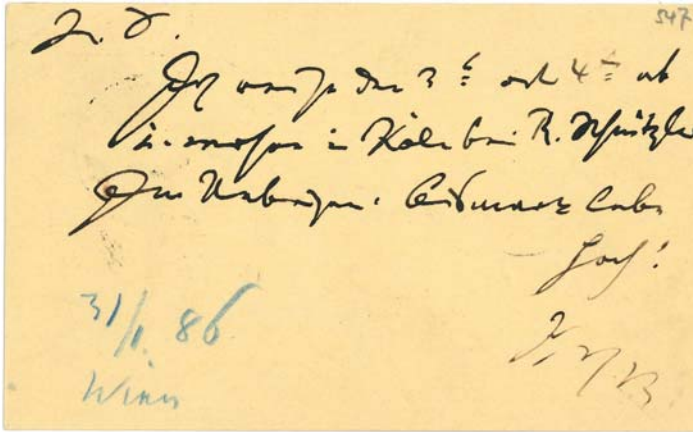 547
Ich reise den 3t od 4t ab
u. wohne in Köln bei R. Schnitzler
Im Uebrigen: Bismarck lebe
hoch!
31/1. 86
Wien